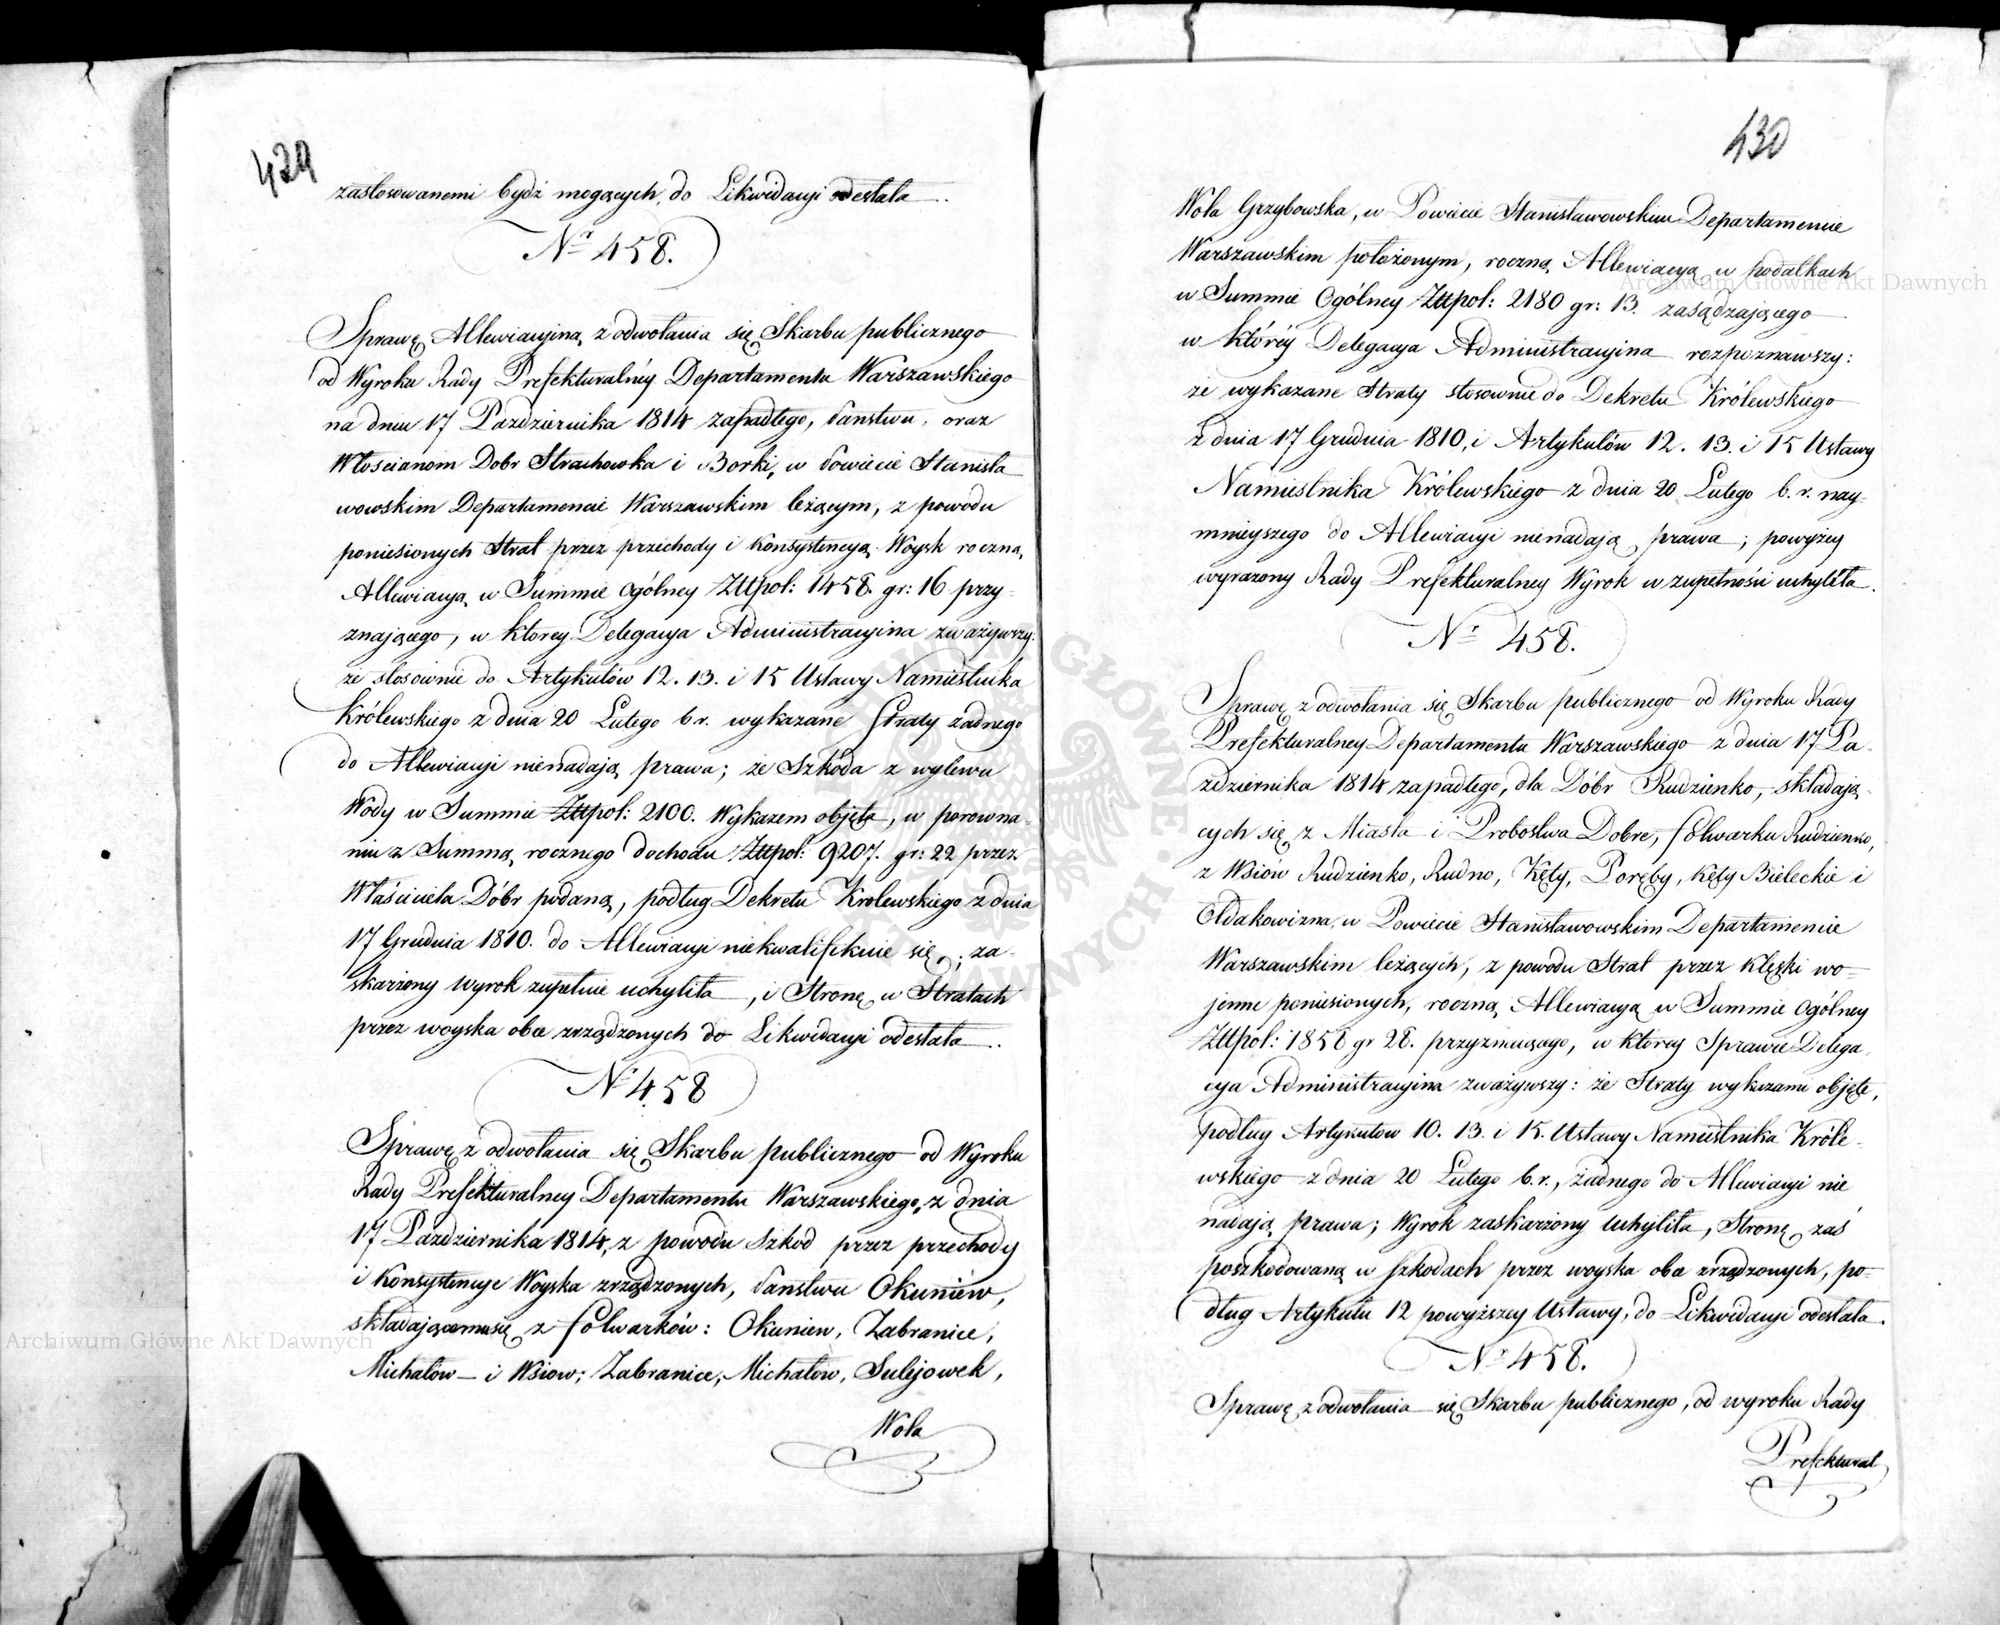 429
zastosowanemi bydź mogących, do Likwidacyi odesłała.
Nr 458.
Sprawę Allewiacyiną z odwołania się Skarbu publicznego
od Wyroku Rady Prefekturalnéy Departamentu Warszawskiego
na dniu 17 Pazdziernika 1814 zapadłego, Państwu, oraz
Włoscianom Dobr Strachowka i Borki, w Powiecie Stanisła
wowskim Departamencie Warszawskim leżącym, z powodu
poniesionych Strat przez przechody i Konsystencyą Woysk roczną
Allewiacyą w Summie ogólney Złtpol: 1458. gr: 16 przy-
znającego, w ktorey Delegacya Administracyina zważywszy:
że stosownie do Artykułów 12. 13. i 15 Ustawy Namiestnika
Królewskiego z dnia 20 Lutego b. r. wykazane Straty żadnego
do Allewiacyi nienadają prawa; że Szkoda z wylewu
Wody w Summie Złtpol: 2100. Wykazem objęta, w porowna-
niu z Summą rocznego dochodu Złtpol: 9207. gr: 22 przez
Właściciela Dóbr podaną, podług Dekretu Krolewskiego z dnia
17 Grudnia 1810. do Allewiacyi niekwalifikuie się; za-
skarżony wyrok zupełnie uchyliła, i Stronę w Stratach
przez woyska obce zrządzonych do Likwidacyi odesłała.
Nr 458
Sprawę z odwołania się Skarbu publicznego od Wyroku
Rady Prefekturalney Departamentu Warszawskiego, z dnia
17 Pazdziernika 1814, z powodu Szkod przez przechody
i Konsystencye Woyska zrządzonych, Państwu Okuniéw,
składającemu się z folwarków: Okuniew, Zabranice,
Michałów – i Wsiow; Zabranice, Michałów, Sulejowek,
Wola
430
Wola Grzybowska, w Powiecie Stanisławowskim Departamencie
Warszawskim położonym, roczną Allewiacyą w podatkach
w Summie Ogólney Złtpol: 2180 gr: 13. zasądzającego
w któréy Delegacya Administracyina rozpoznawszy:
że wykazane Straty stosownie do Dekretu Królewskiego
z dnia 17 Grudnia 1810, i Artykułów 12. 13. i 15 Ustawy
Namiestnika Królewskiego z dnia 20 Lutego b. r. nay-
mnieyszego do Allewiacyi nienadają prawa; powyżey
wyrazony Rady Prefekturalney Wyrok w zupełności uchyliła.
Nr 458.
Sprawę z odwołania się Skarbu publicznego od Wyroku Rady
Prefekturalney Departamentu Warszawskiego z dnia 17 Pa-
zdziernika 1814 zapadłego, dla Dóbr Rudzienko, składają-
cych się z Miasta i Probostwa Dobre, folwarku Rudzienko,
z Wsiów Rudzienko, Rudno, Kęty, Poręby, Kęty Bieleckie i
Ołdakowizna, w Powiecie Stanisławowskim Departamencie
Warszawskim leżących, z powodu Strat przez klęski wo-
jenne poniesionych, roczną Allewiacyą w Summie ogólney
Złtpol: 1858 gr 28. przyznaiącego, w ktorey Sprawie Delega-
cya Administracyina zważywszy: że Straty wykazami objęte,
podług Artykułow 10. 13. i 15. Ustawy Namiestnika Króle-
wskiego z dnia 20 Lutego b. r., żadnego do Allewiacyi nie
nadają prawa; Wyrok zaskarżony uchyliła, Stronę zaś
poszkodowaną w szkodach przez woyska obce zrządzonych, po-
dług Artykułu 12 powyższey Ustawy, do Likwidacyi odesłała.
Nr 458.
Sprawę z odwołania się Skarbu publicznego, od wyroku Rady
Prefektural
Archiwum Główne Akt Dawnych
Archiwum Główne Akt Dawnych